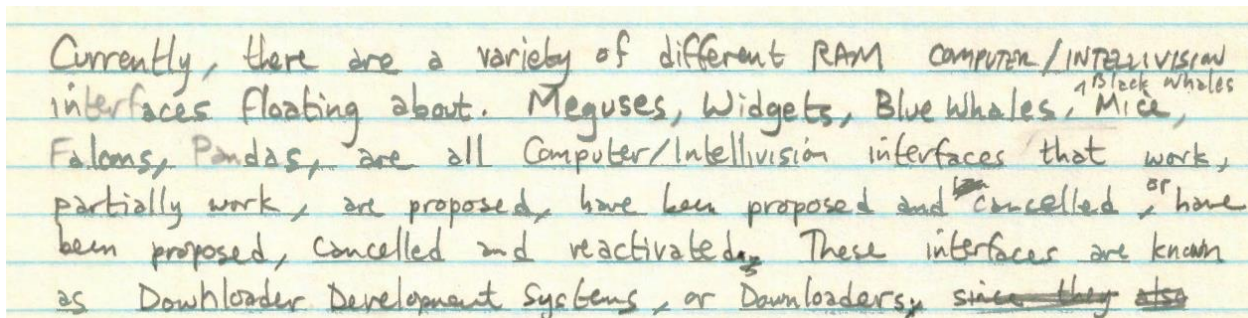 Currently, there are a variety of different RAM COMPUTER/INTELLIVISION
interfaces floating about. Meguses, Widgets, Blue Whales, Black Whales, Mice,
Faloms, Pandas, are all Computer/Intellivision interfaces that work,
partially work, are proposed, have been proposed and cancelled, or have
been proposed, cancelled and reactivated. These interfaces are known
as Downloader Development Systems, or Downloaders, since they also